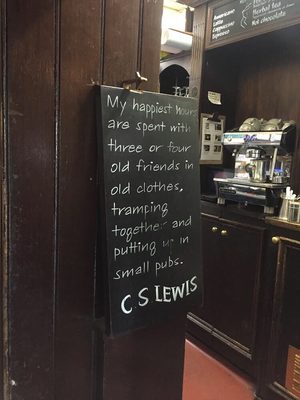 My happiest hours
are spent with
three or four
old friends in
old clothes,
tramping
together and
putting up in
small pubs.
C S LEWIS
Americano
Latte
Cappuccino
Espresso
Herbal tea
Hot chocolate